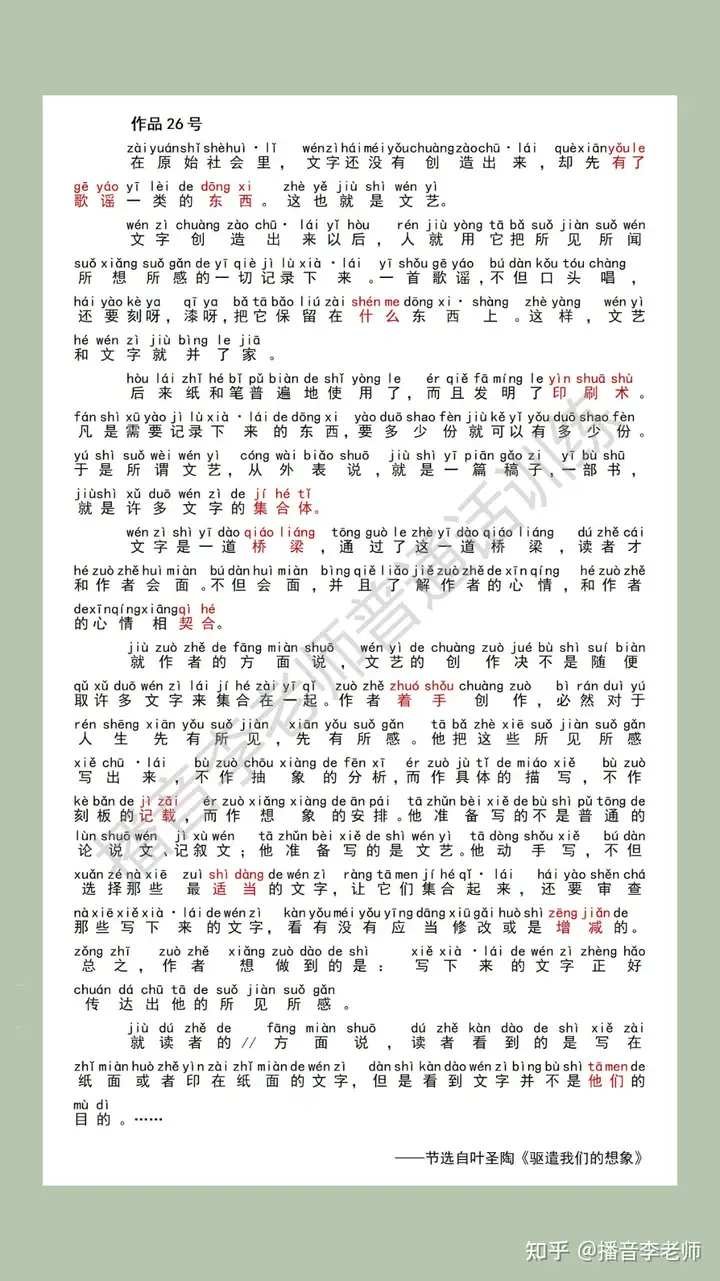 作品 26 号
zài yuán shǐ shè huì · lǐ wén zì hái méi yǒu chuàng zào chū · lái què xiān yǒu le
在原始社会里，文字还没有创造出来，却先有了
gē yáo yī lèi de dōng xi zhè yě jiù shì wén yì
歌谣一类的东西。这也就是文艺。
wén zì chuàng zào chū · lái yǐ hòu rén jiù yòng tā bǎ suǒ jiàn suǒ wén
文字创造出来以后，人就用它把所见所闻
suǒ xiǎng suǒ gǎn de yī qiè jì lù xià · lái yī shǒu gē yáo bú dàn kǒu tóu chàng
所想所感的一切记录下来。一首歌谣，不但口头唱，
hái yào kè ya qī ya bǎ tā bǎo liú zài shén me dōng xi · shàng zhè yàng wén yì
还要刻呀，漆呀，把它保留在什么东西上。这样，文艺
hé wén zì jiù bìng le jiā
和文字就并了家。
hòu lái zhǐ hé bǐ pǔ biàn de shǐ yòng le ér qiě fā míng le yìn shuā shù
后来纸和笔普遍地使用了，而且发明了印刷术。
fán shì xū yào jì lù xià · lái de dōng xi yào duō shao fèn jiù kě yǐ yǒu duō shao fèn
凡是需要记录下来的东西，要多少份就可以有多少份。
yú shì suǒ wèi wén yì cóng wài biǎo shuō jiù shì yī piān gǎo zi yī bù shū
于是所谓文艺，从外表说，就是一篇稿子，一部书，
jiù shì xǔ duō wén zì de jí hé tǐ
就是许多文字的集合体。
wén zì shì yī dào qiáo liáng tōng guò le zhè yī dào qiáo liáng dú zhě cái
文字是一道桥梁，通过了这一道桥梁，读者才
hé zuò zhě huì miàn bú dàn huì miàn bìng qiě liǎo jiě zuò zhě de xīn qíng hé zuò zhě
和作者会面。不但会面，并且了解作者的心情，和作者
de xīn qíng xiāng qì hé
的心情相契合。
jiù zuò zhě de fāng miàn shuō wén yì de chuàng zuò jué bù shì suí biàn
就作者的方面说，文艺的创作决不是随便
qǔ xǔ duō wén zì lái jí hé zài yī qǐ zuò zhě zhuó shǒu chuàng zuò bì rán duì yú
取许多文字来集合在一起。作者着手创作，必然对于
rén shēng xiān yǒu suǒ jiàn xiān yǒu suǒ gǎn tā bǎ zhè xiē suǒ jiàn suǒ gǎn
人生先有所见，先有所感。他把这些所见所感
xiě chū · lái bù zuò chōu xiàng de fēn xī ér zuò jù tǐ de miáo xiě bù zuò
写出来，不作抽象的分析，而作具体的描写，不作
kè bǎn de jì zǎi ér zuò xiǎng xiàng de ān pái tā zhǔn bèi xiě de bù shì pǔ tōng de
刻板的记载，而作想象的安排。他准备写的不是普通的
lùn shuō wén jì xù wén tā zhǔn bèi xiě de shì wén yì tā dòng shǒu xiě bú dàn
论说文、记叙文；他准备写的是文艺。他动手写，不但
xuǎn zé nà xiē zuì shì dàng de wén zì ràng tā men jí hé qǐ · lái hái yào shěn chá
选择那些最适当的文字，让它们集合起来，还要审查
nà xiē xiě xià · lái de wén zì kàn yǒu méi yǒu yīng dāng xiū gǎi huò shì zēng jiǎn de
那些写下来的文字，看有没有应当修改或是增减的。
zǒng zhī zuò zhě xiǎng zuò dào de shì xiě xià · lái de wén zì zhèng hǎo
总之，作者想做到的是：写下来的文字正好
chuán dá chū tā de suǒ jiàn suǒ gǎn
传达出他的所见所感。
jiù dú zhě de fāng miàn shuō dú zhě kàn dào de shì xiě zài
就读者的//方面说，读者看到的是写在
zhǐ miàn huò zhě yìn zài zhǐ miàn de wén zì dàn shì kàn dào wén zì bìng bù shì tā men de
纸面或者印在纸面的文字，但是看到文字并不是他们的
mù dì
目的。……
——节选自叶圣陶《驱遣我们的想象》
播音李老师普通话训练
知乎 @播音李老师